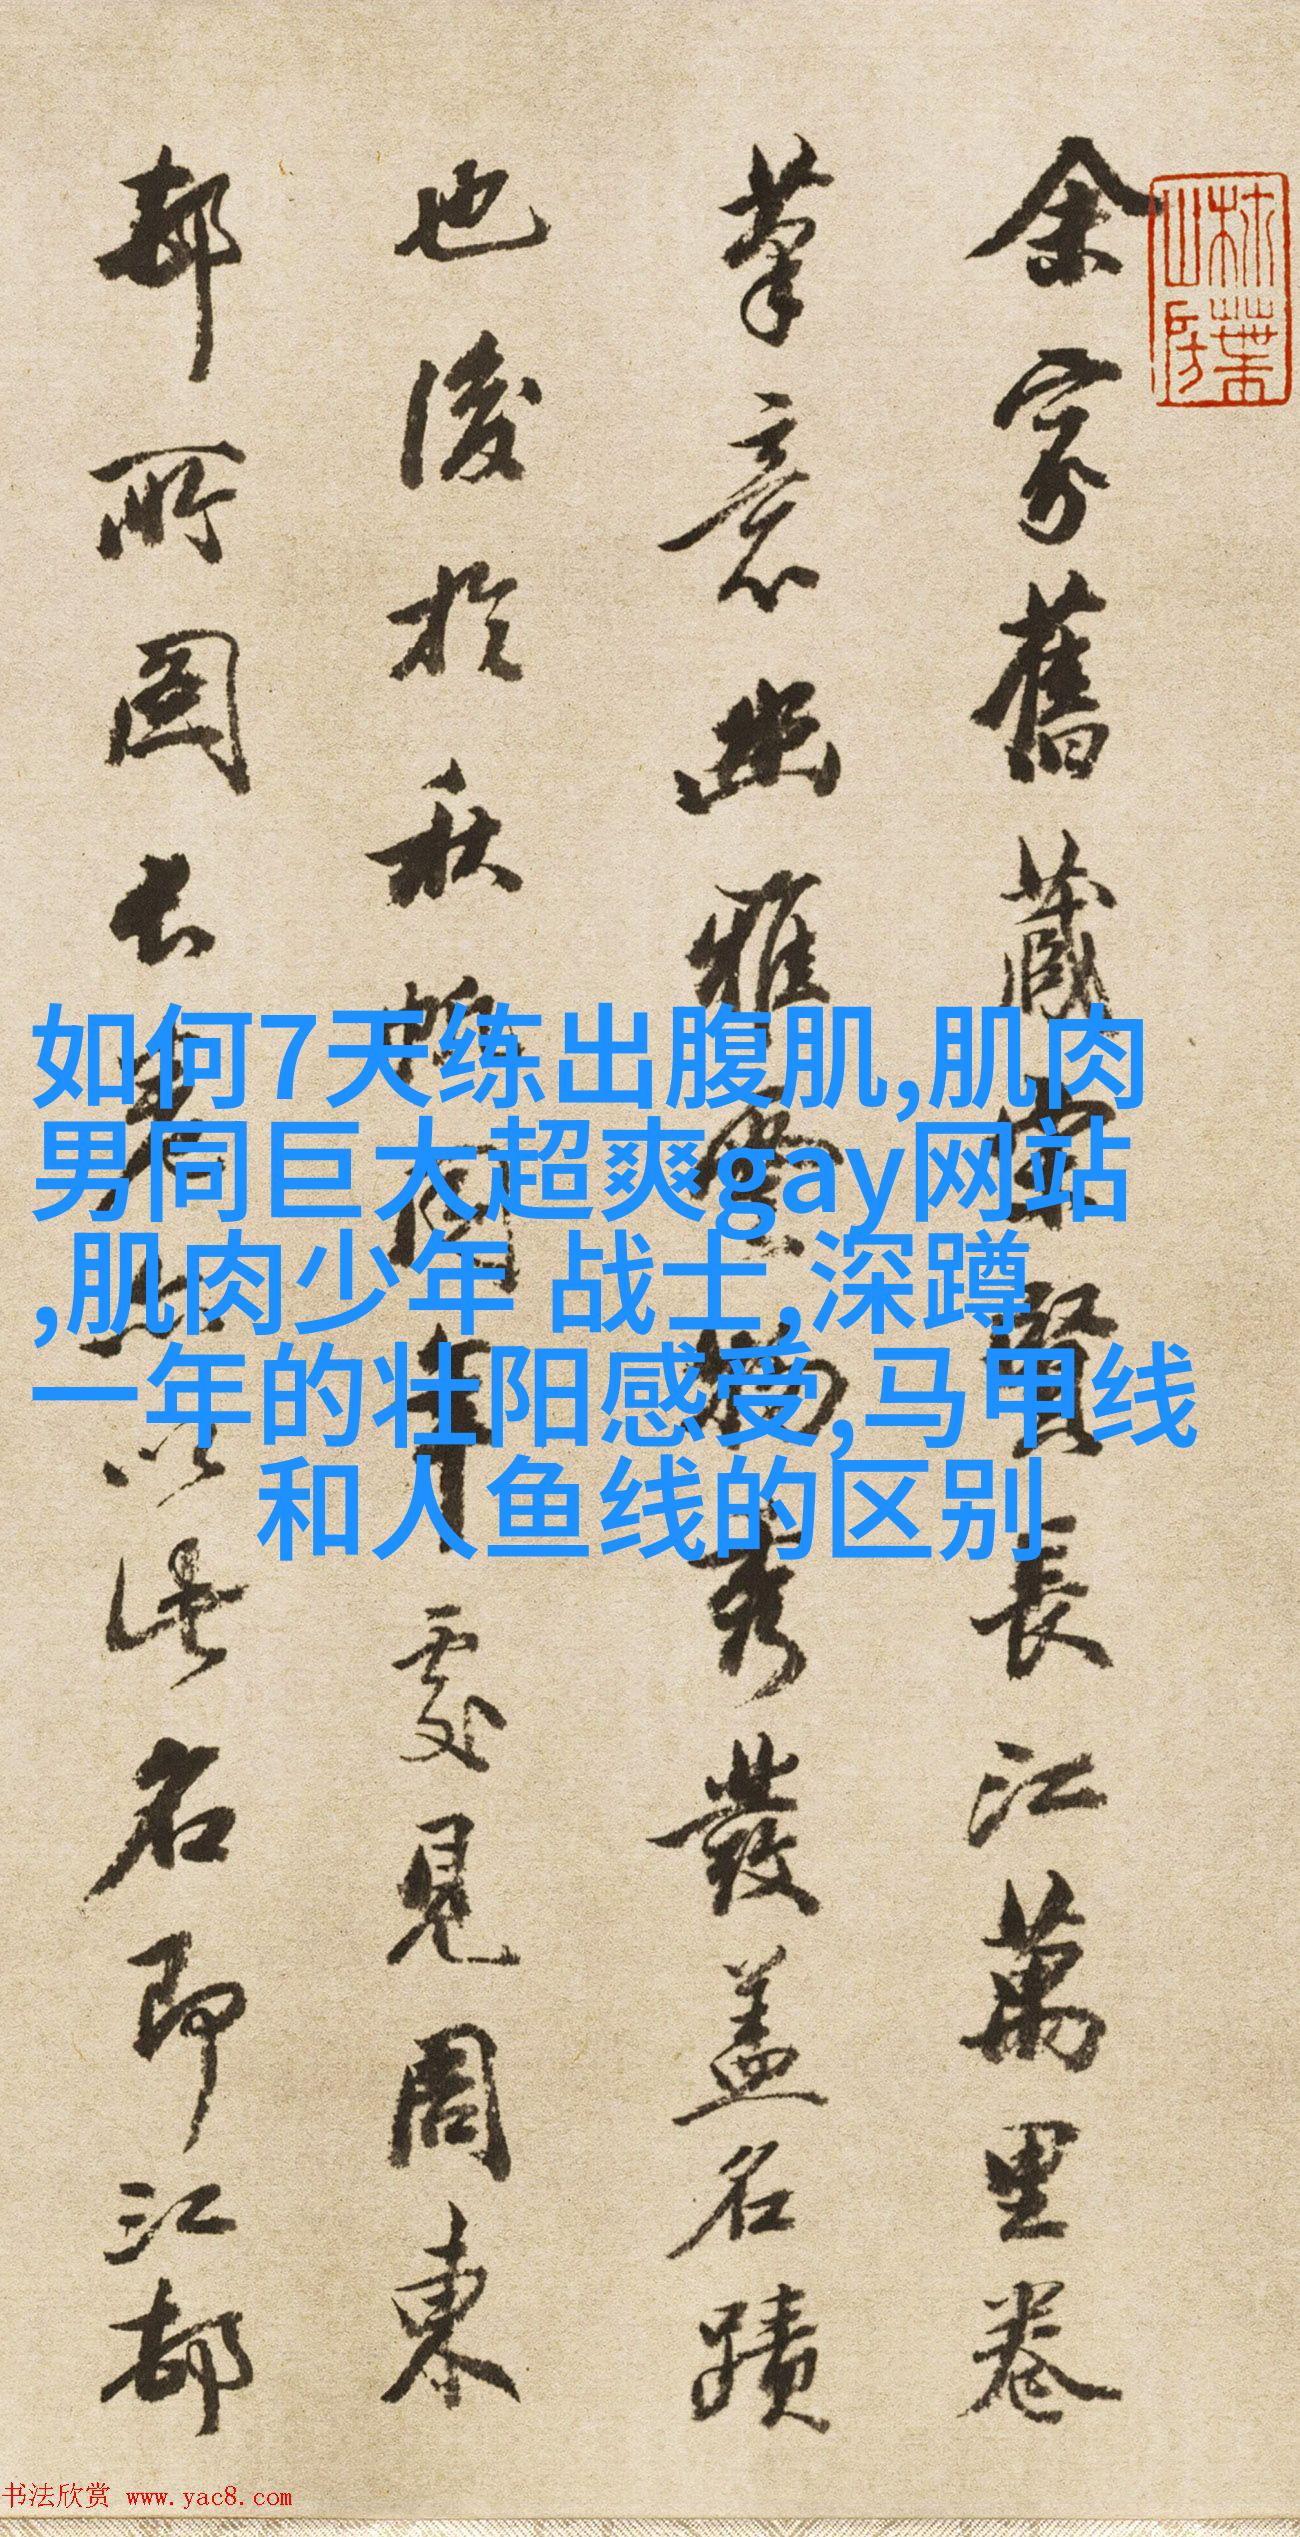 余家舊藏宋賢長江萬里卷
筆意幽雅秀發盖名蹟
也後於秋帆同年處見周東
邨所圖長卷亦以此名即江都
如何7天练出腹肌,肌肉
男同巨大超爽gay网站
,肌肉少年 战士,深蹲
一年的壮阳感受,马甲线
和人鱼线的区别
书法欣赏 www.yac8.com